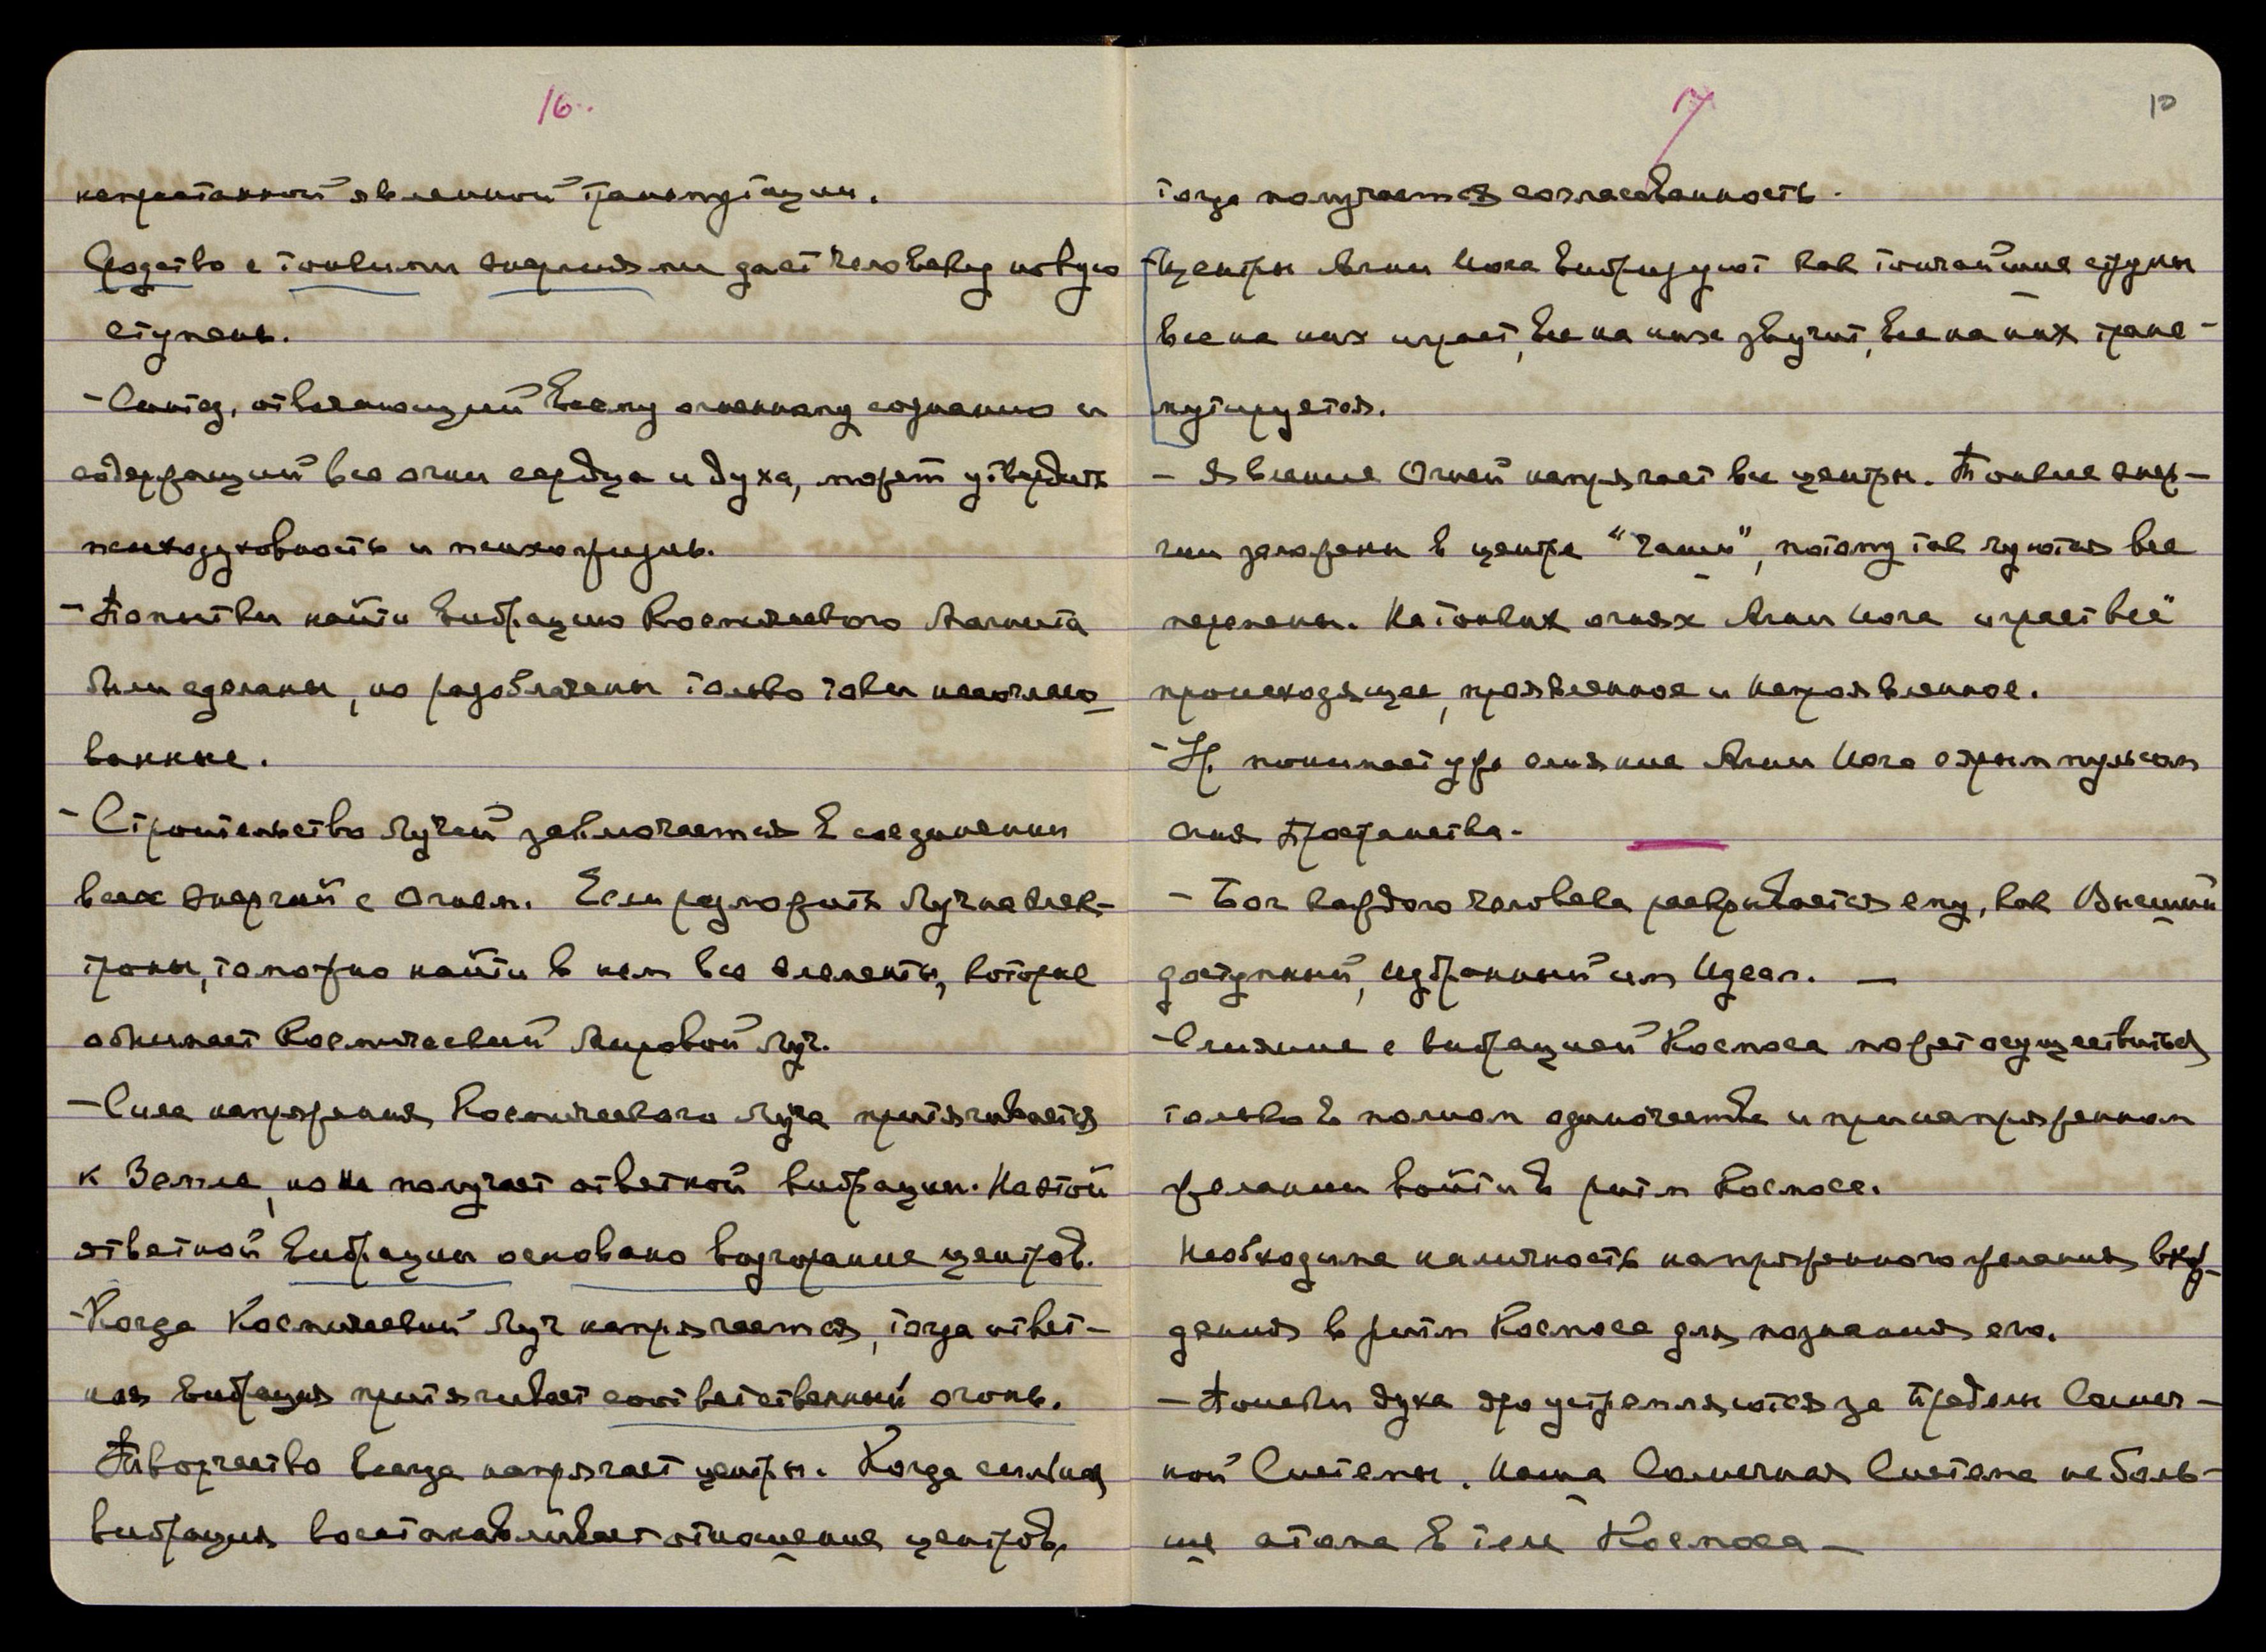 16.
непрестанной явленной трансмутации.
Сродство с тонкими энергиями дает человеку новую
ступень.
- Синтез, отвечающий всему огненному сознанию и
содержащий все огни сердца и духа, может утвердить
психодуховность и психожизнь.
- Попытки найти вибрацию Космического Магнита
были сделаны, но разоблачены только токи несогласо-
ванные.
- Строительство Лучей заключается в соединении
всех энергий с Огнем. Если разложить Луч на элек-
троны, то можно найти в нем все элементы, которые
обнимает Космический Мировой Луч.
- Сила напряжения Космического Луча притягивается
к Земле, но не получает ответной вибрации. На этой
ответной вибрации основано возгорание центров.
- Когда Космический Луч напрягается, тогда ответ-
ная вибрация притягивает соответственный огонь.
Творчество всегда напрягает центры. Когда сильная
вибрация восстанавливает отношение центров,
17 10
тогда получается согласованность.
- Центры Агни Йога вибрируют как тончайшие струны
все на них играет, все на них звучит, все на них транс-
мутируется.
- Явление Огней напрягает все центры. Тонкие энер-
гии заложены в центре "Чаши", потому так чуются все
перемены. На тонких огнях Агни Йога играет всё
происходящее, проявленное и непроявленное.
- Ур. понимает уже слияние Агни Йога с ритм пульсом
Огня Пространства.
- Бог каждого человека раскрывается ему, как Высший
доступный, избранный им Идеал. —
- Слияние с вибрацией Космоса может осуществиться
только в полном одиночестве и при напряженном
желании войти в ритм Космоса.
Необходима наличность напряженного желания вхо-
дения в ритм Космоса для познания его.
- Поиски духа Ур. устремляются за пределы Солнеч-
ной Системы. Наша Солнечная Система не боль-
ше атома в теле Космоса —